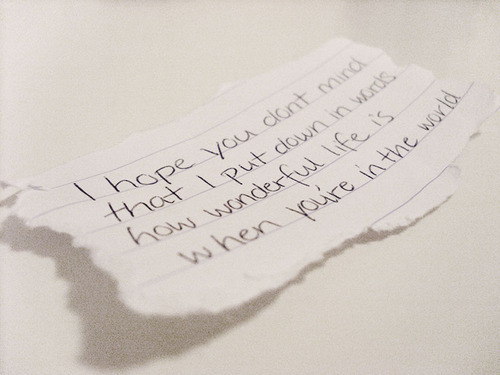 I hope you dont mind
that I put down in words
how wonderful life is
when you're in the world